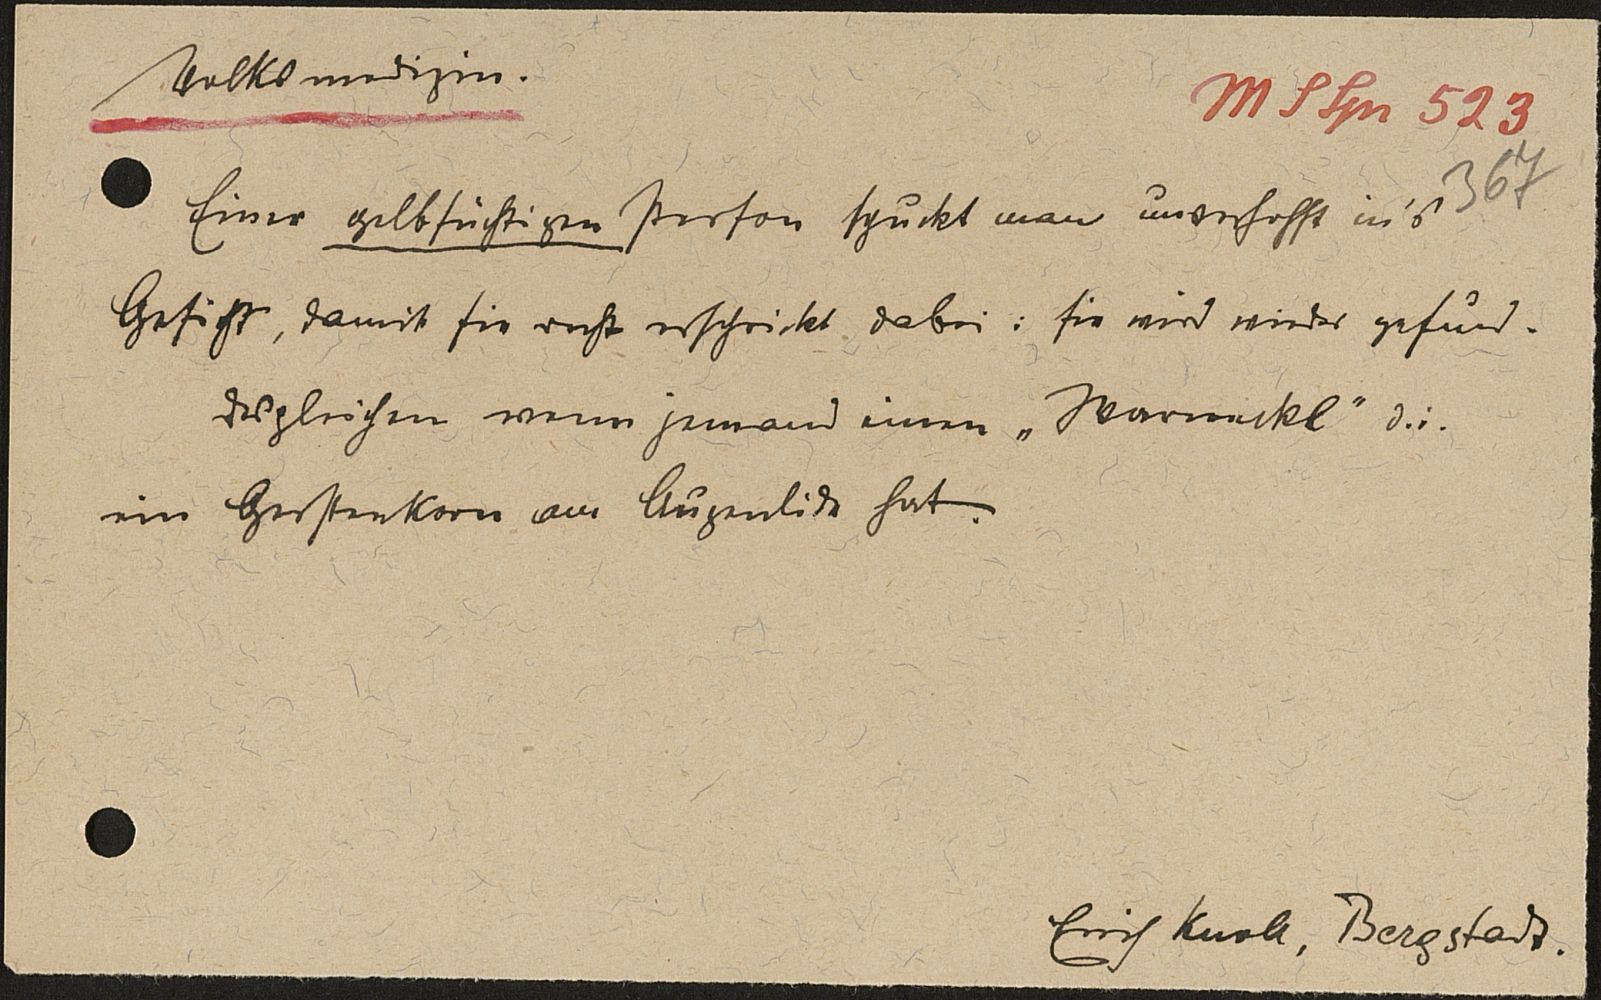 Volksmedizin.
M S Spr 523
367
Einer gelbsüchtigen Person spuckt man unverhofft in's
Gesicht, damit sie recht erschrickt dabei: sie wird wieder gesund.
Desgleichen wenn jemand einen „Warneckl" d.i.
ein Gerstenkorn am Augenlide hat.
Erich Knoll, Bergstadt.